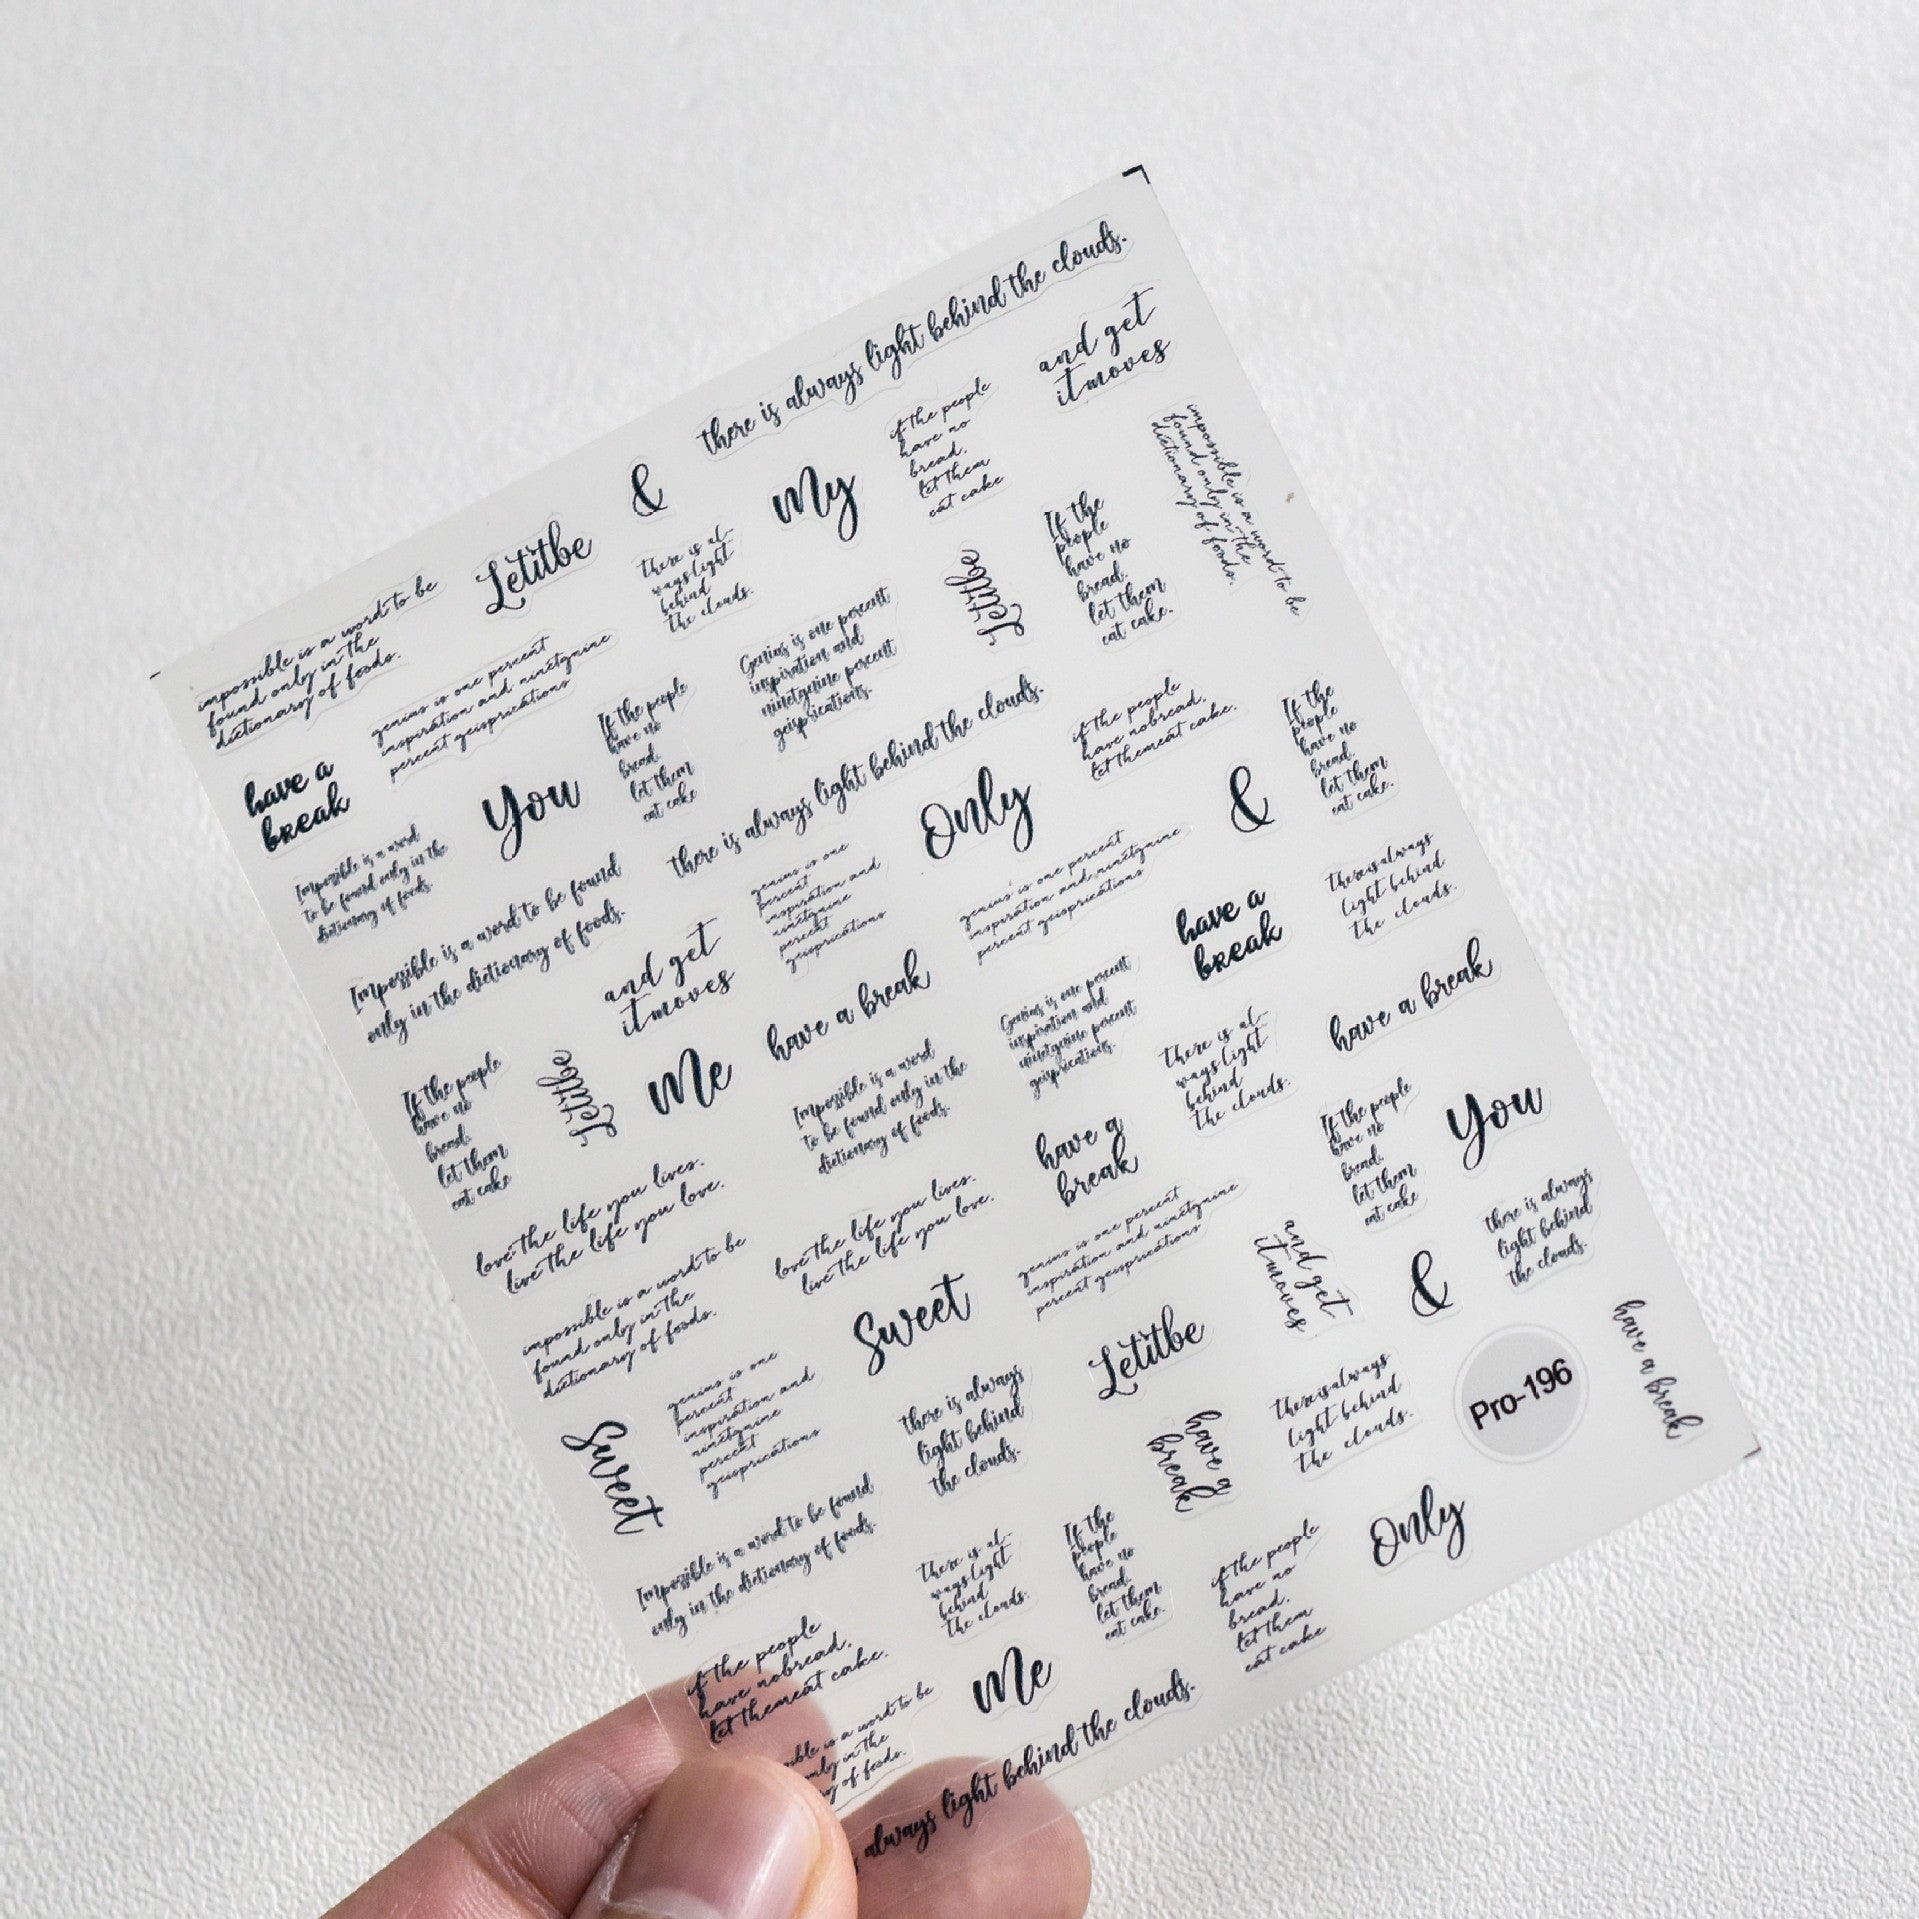 there is always light behind the clouds.
and get
itmoves
if the people
have no
bread,
let them
eat cake
My
&
Letitbe
there is al-
ways light
behind
the clouds.
impossible is a word to be
found only in the
dictionary of foods.
impossible is a word to be
found only in the
dictionary of foods.
If the
people
have no
bread.
let them
eat cake.
Letitbe
Genius is one percent
inspiration and
ninetynine percent
geisprications.
genius is one percent
inspiration and ninetynine
percent geisprications
have a
break
You
If the people
have no
bread.
let them
eat cake
there is always light behind the clouds.
if the people
have nobread,
let themeat cake.
If the
people
have no
bread.
let them
eat cake.
&
Only
Impossible is a word
to be found only in the
dictionary of foods.
Impossible is a word to be found
only in the dictionary of foods.
genius is one
percent
inspiration and
ninetynine
percent
geisprications
genius is one percent
inspiration and ninetynine
percent geisprications
have a
break
thereisalways
light behind
the clouds.
and get
itmoves
have a break
Genius is one percent
inspiration and
ninetynine percent
geisprications.
there is al-
ways light
behind
the clouds.
have a break
If the people
have no
bread.
let them
eat cake
Letitbe
Me
Impossible is a word
to be found only in the
dictionary of foods.
have a
break
If the people
have no
bread.
let them
eat cake
You
love the life you lives.
live the life you love.
love the life you lives.
live the life you love.
genius is one percent
inspiration and ninetynine
percent geisprications
and get
itmoves
&
there is always
light behind
the clouds.
impossible is a word to be
found only in the
dictionary of foods.
Sweet
Letitbe
thereisalways
light behind
the clouds.
Pro-196
have a break
Sweet
genius is one
percent
inspiration and
ninetynine
percent
geisprications
there is always
light behind
the clouds.
have a
break
Only
Impossible is a word to be found
only in the dictionary of foods.
there is al-
ways light
behind
the clouds.
If the
people
have no
bread.
let them
eat cake.
if the people
have no
bread,
let them
eat cake
if the people
have nobread,
let themeat cake.
is a word to be
in the
of foods.
Me
always light behind the clouds.